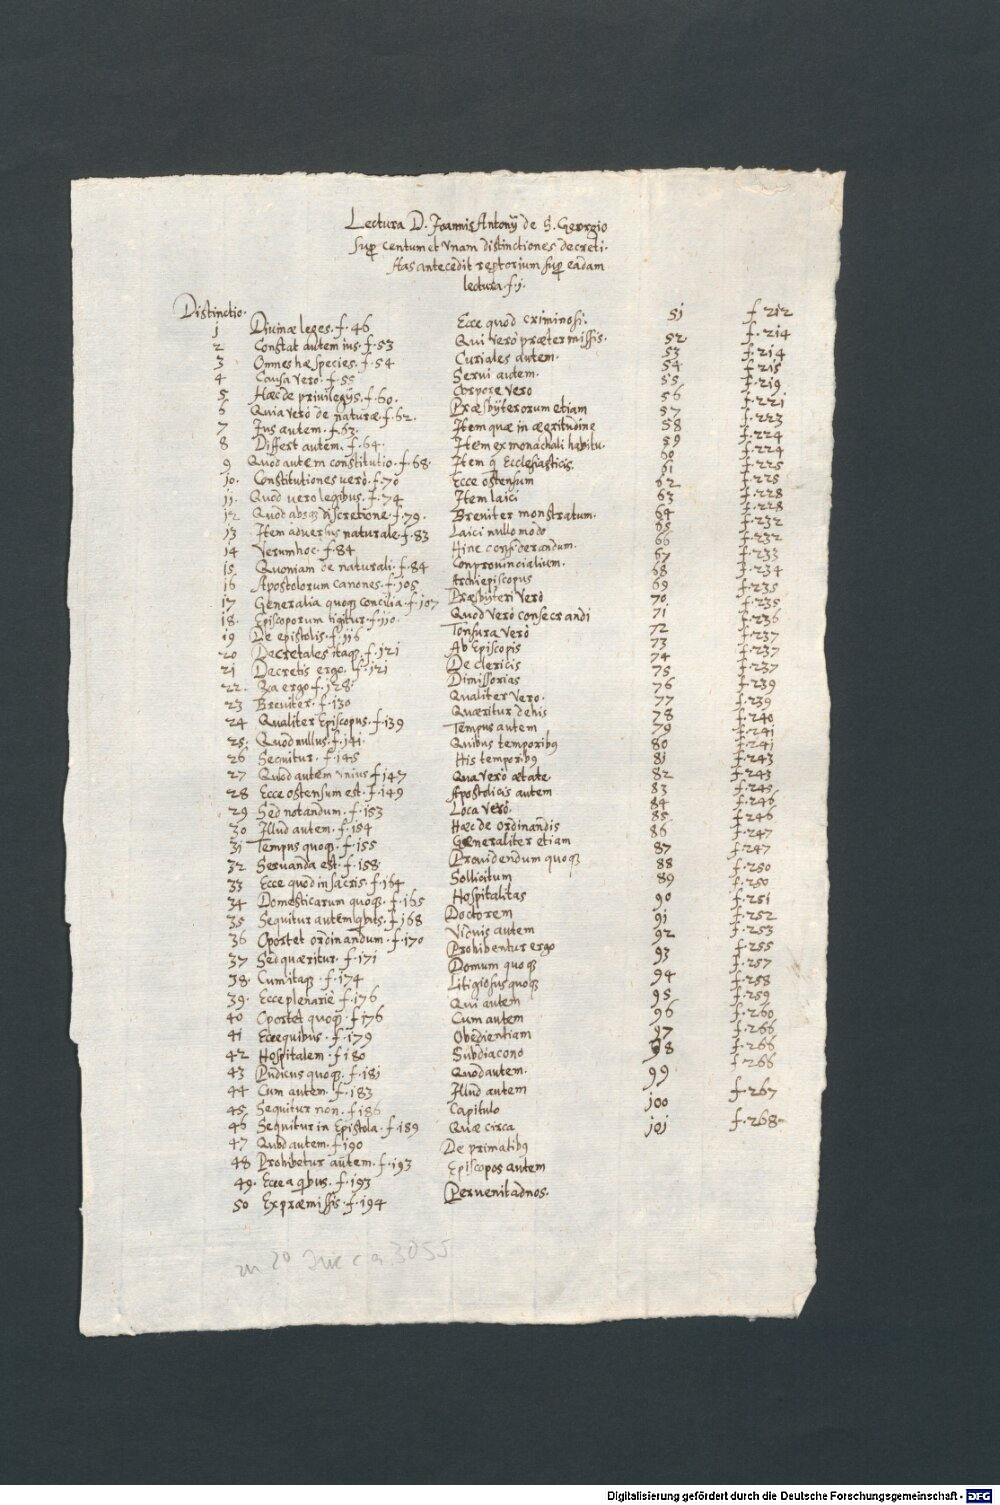 Lectura D. Joannis Antonij de S. Georgio
sup centum et vnam distinctiones decreti.
Has antecedit reptorium sup eadam
lectura. f. j.
Distinctio.
j Diuinæ leges. f. 46
2 Constat autem ius. f. 53
3 Omnes hæ species. f. 54
4 Causa vero. f. 55
5 Hæc de priuilegijs. f. 60.
6 Quia vero de naturæ. f. 62.
7 Jus autem. f. 63.
8 Differt autem. f. 64.
9 Quod autem constitutio. f. 68.
10. Constitutiones vero. f. 70
11. Quod vero legibus. f. 74
12 Quod absq discretione. f. 79.
13 Item aduersus naturale. f. 83
14 Verum hoc. f. 84
15. Quoniam de naturali. f. 84
16 Apostolorum canones. f. 105
17 Generalia quoq concilia. f. 107
18. Episcoporum igitur. f. 110.
19 De epistolis. f. 116
20 Decretales itaq. f. 121
21 Decretis ergo. f. 121
22. Ea ergo f. 128.
23 Breuiter. f. 130
24 Qualiter Episcopus. f. 139
25. Quod nullus. f. 141.
26 Sequitur. f. 145
27 Quod autem vnius f. 147
28 Ecce ostensum est. f. 149
29 Sed notandum. f. 153
30 Illud autem. f. 154
31 Tempus quoq. f. 155
32 Seruanda est. f. 158.
33 Ecce quod in sacris. f. 164
34 Domesticarum quoq. f. 165
35 Sequitur autem qbus. f. 168
36 Oportet ordinandum. f. 170
37 Sed quæritur. f. 171
38. Cum itaq. f. 174
39. Ecce plenariè f. 176
40 Oportet quoq. f. 176
41 Ecce quibus. f. 179
42 Hospitalem. f. 180
43 Pudicus quoq. f. 181
44 Cum autem. f. 183
45 Sequitur non. f. 186
46 Sequitur in Epistola. f. 189
47 Quod autem. f. 190
48 Prohibetur autem. f. 193
49. Ecce a qbus. f. 193
50 Ex præmissis. f. 194
Ecce quod criminosi. 51 f. 212
Qui vero prætermissis. 52 f. 214
Curiales autem. 53 f. 214
Serui autem. 54 f. 215
Corpore vero 55 f. 219
Præsbyterorum etiam 56 f. 221
Item quæ in ægritudine 57 f. 223
Item ex monachali habitu. 58 f. 224
Item q Ecclesiasticis. 59 f. 224
Ecce ostensum 60 f. 225
Item laici 61 f. 225
Breuiter monstratum. 62 f. 228
Laici nullo modo 63 f. 228
Hinc considerandum. 64 f. 232
Conprouincialium. 65 f. 232
Archiepiscopus 66 f. 233
Præsbyteri vero 67 f. 234
Quod vero consecrandi 68 f. 235
Tonsura vero 69 f. 235
Ab Episcopis 70 f. 236
De clericis 71 f. 237
Dimissorias 72 f. 237
Qualiter vero. 73 f. 237
Quæritur de his 74 f. 239
Tempus autem 75 f. 239
Quibus temporibq 76 f. 240
His temporibq 77 f. 241
Qua vero ætate 78 f. 241
Apostolicis autem 79 f. 243
Loca vero. 80 f. 243
Hæc de ordinandis 81 f. 245
Generaliter etiam 82 f. 246
Prouidendum quoq 83 f. 246
Sollicitum 84 f. 247
Hospitalitas 85. f. 247
Doctorem 86 f. 250
Viduis autem 87 f. 250
Prohibentur ergo 88 f. 251
Domum quoq 89 f. 252
Litigiosus quoq 90 f. 253
Qui autem 91 f. 255
Cum autem 92 f. 257
Obedientiam 93 f. 258
Subdiacono 94 f. 259
Quod autem. 95 f. 260
Illud autem 96 f. 266
Capitulo 97 f. 266
Quæ circa 98 f. 266
De primatibq 99 f. 267
Episcopos autem 100 f. 268
Peruenit ad nos. 101
Digitalisierung gefördert durch die Deutsche Forschungsgemeinschaft - DFG